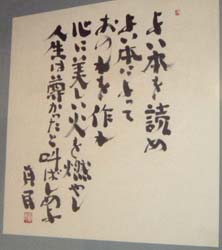 よい本を読め
よい本によって
おのれを作れ
心に美しい火を燃やし
人生は尊かったと叫ばしめよ
真民